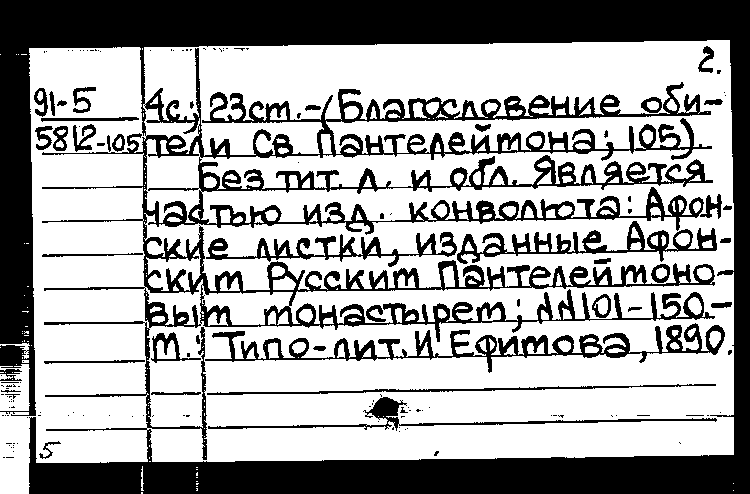 2.
91-5 4с.; 23см.-(Благословение оби-
5812-105 тели Св. Пантелеймона; 105).
Без тит. л. и обл. Является
частью изд. конволюта: Афон-
ские листки, изданные Афон-
ским Русским Пантелеймоно-
вым монастырем; NN101-150.-
М.: Типо-лит. И. Ефимова, 1890.
5